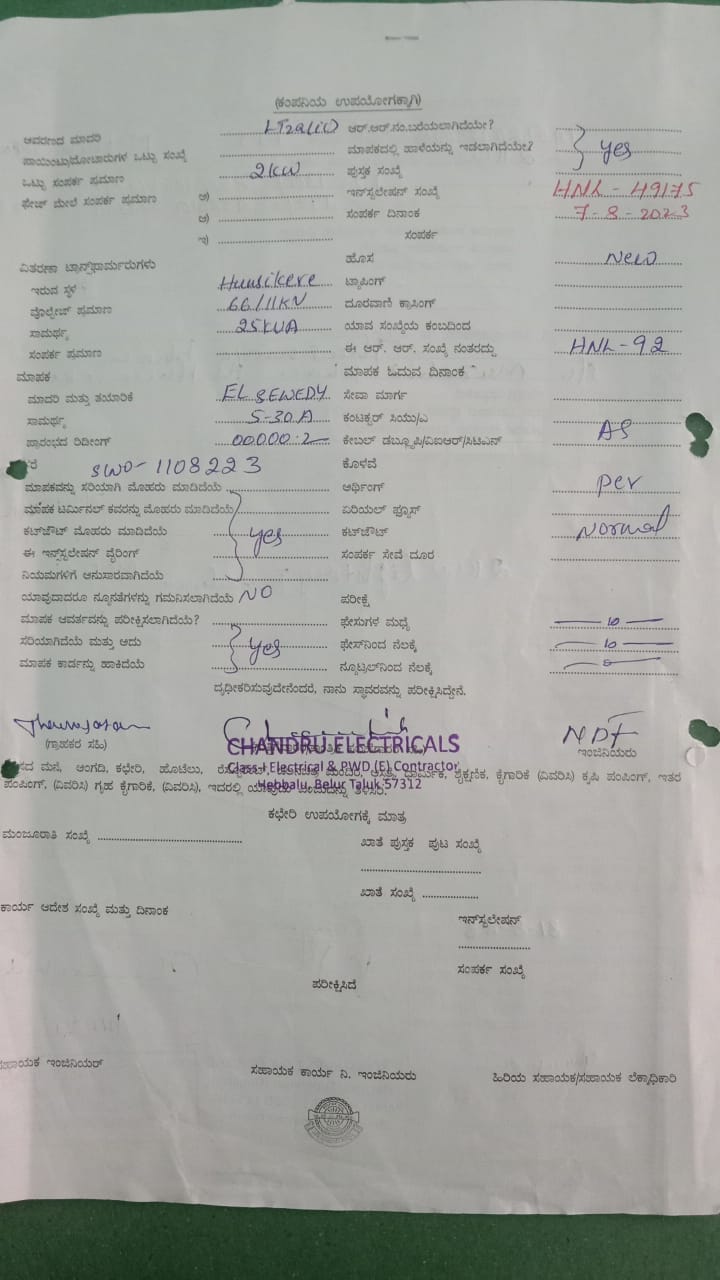 (ಕಂಪನಿಯ ಉಪಯೋಗಕ್ಕಾಗಿ)
ಆವರಣದ ಮಾದರಿ ಆರ್.ಆರ್.ನಂ.ಬರೆಯಲಾಗಿದೆಯೇ?
ಪಾಯಿಂಟ್ಸು/ಮೋಟಾರುಗಳ ಒಟ್ಟು ಸಂಖ್ಯೆ ಮಾಪಕದಲ್ಲಿ ಹಾಳೆಯನ್ನು ಇಡಲಾಗಿದೆಯೇ? yes
ಒಟ್ಟು ಸಂಪರ್ಕ ಪ್ರಮಾಣ 2KW ಪುಸ್ತಕ ಸಂಖ್ಯೆ
ಫೇಜ್ ಮೇಲೆ ಸಂಪರ್ಕ ಪ್ರಮಾಣ ಅ) ಇನ್‌ಸ್ಟಲೇಷನ್ ಸಂಖ್ಯೆ HNL-49175
ಆ) ಸಂಪರ್ಕ ದಿನಾಂಕ 7-8-2023
ಇ) ಸಂಪರ್ಕ
ವಿತರಣಾ ಟ್ರಾನ್ಸ್‌ಫಾರ್ಮರುಗಳು ಹೊಸ New
ಇರುವ ಸ್ಥಳ Hunsikere ಟ್ಯಾಪಿಂಗ್
ವೋಲ್ಟೇಜ್ ಪ್ರಮಾಣ 66/11KV ದೂರವಾಣಿ ಕ್ರಾಸಿಂಗ್
ಸಾಮರ್ಥ್ಯ 25KVA ಯಾವ ಸಂಖ್ಯೆಯ ಕಂಬದಿಂದ
ಸಂಪರ್ಕ ಪ್ರಮಾಣ ಈ ಆರ್. ಆರ್. ಸಂಖ್ಯೆ ನಂತರದ್ದು HNL-92
ಮಾಪಕ ಮಾಪಕ ಓದುವ ದಿನಾಂಕ
ಮಾದರಿ ಮತ್ತು ತಯಾರಿಕೆ EL SEWEDY ಸೇವಾ ಮಾರ್ಗ
ಸಾಮರ್ಥ್ಯ 5-30A ಕಂಟಕ್ಟರ್ ಸಿಯು/ಎ
ಪ್ರಾರಂಭದ ರಿಡಿಂಗ್ 00000:2 ಕೇಬಲ್ ಡಬ್ಲ್ಯೂಪಿ/ವಿಐಆರ್/ಸಿಟಿಎಸ್ AS
SWD-1108223 ಕೊಳವೆ
ಮಾಪಕವನ್ನು ಸರಿಯಾಗಿ ಮೊಹರು ಮಾಡಿದೆಯೆ ಆರ್ಥಿಂಗ್ per
ಮಾಪಕ ಟರ್ಮಿನಲ್ ಕವರನ್ನು ಮೊಹರು ಮಾಡಿದೆಯೆ ಏರಿಯಲ್ ಫ್ಯೂಸ್
ಕಟ್‌ಔಟ್ ಮೊಹರು ಮಾಡಿದೆಯೆ yes ಕಟ್‌ಔಟ್ Normal
ಈ ಇನ್‌ಸ್ಟಲೇಷನ್ ವೈರಿಂಗ್ ಸಂಪರ್ಕ ಸೇವೆ ದೂರ
ನಿಯಮಗಳಿಗೆ ಅನುಸಾರವಾಗಿದೆಯೆ
ಯಾವುದಾದರೂ ನ್ಯೂನತೆಗಳನ್ನು ಗಮನಿಸಲಾಗಿದೆಯೆ NO ಪರೀಕ್ಷೆ
ಮಾಪಕ ಆವರ್ತವನ್ನು ಪರೀಕ್ಷಿಸಲಾಗಿದೆಯೆ? ಫೇಸುಗಳ ಮಧ್ಯೆ
ಸರಿಯಾಗಿದೆಯೆ ಮತ್ತು ಅದು yes ಫೇಸ್‌ನಿಂದ ನೆಲಕ್ಕೆ
ಮಾಪಕ ಕಾರ್ಡನ್ನು ಹಾಕಿದೆಯೆ ನ್ಯೂಟ್ರಲ್‌ನಿಂದ ನೆಲಕ್ಕೆ
ದೃಢೀಕರಿಸುವುದೇನೆಂದರೆ, ನಾನು ಸ್ಥಾವರವನ್ನು ಪರೀಕ್ಷಿಸಿದ್ದೇನೆ.
CHANDRU ELECTRICALS
(ಗ್ರಾಹಕರ ಸಹಿ) ಇಂಜಿನಿಯರು
Class-I Electrical & PWD (E) Contractor
ಮನೆ, ಅಂಗಡಿ, ಕಛೇರಿ, ಹೋಟೆಲು, ಶೈಕ್ಷಣಿಕ, ಕೈಗಾರಿಕೆ (ವಿವರಿಸಿ) ಕೃಷಿ ಪಂಪಿಂಗ್, ಇತರ
Hebbalu, Belur Taluk 57312
ಪಂಪಿಂಗ್, (ವಿವರಿಸಿ) ಗೃಹ ಕೈಗಾರಿಕೆ, (ವಿವರಿಸಿ), ಇದರಲ್ಲಿ
ಕಛೇರಿ ಉಪಯೋಗಕ್ಕೆ ಮಾತ್ರ
ಮಂಜೂರಾತಿ ಸಂಖ್ಯೆ ಖಾತೆ ಪುಸ್ತಕ ಪುಟ ಸಂಖ್ಯೆ
ಖಾತೆ ಸಂಖ್ಯೆ
ಕಾರ್ಯ ಆದೇಶ ಸಂಖ್ಯೆ ಮತ್ತು ದಿನಾಂಕ
ಇನ್‌ಸ್ಟಲೇಷನ್
ಸಂಪರ್ಕ ಸಂಖ್ಯೆ
ಪರೀಕ್ಷಿಸಿದೆ
ಸಹಾಯಕ ಇಂಜಿನಿಯರ್ ಸಹಾಯಕ ಕಾರ್ಯ ನಿ. ಇಂಜಿನಿಯರು ಹಿರಿಯ ಸಹಾಯಕ/ಸಹಾಯಕ ಲೆಕ್ಕಾಧಿಕಾರಿ